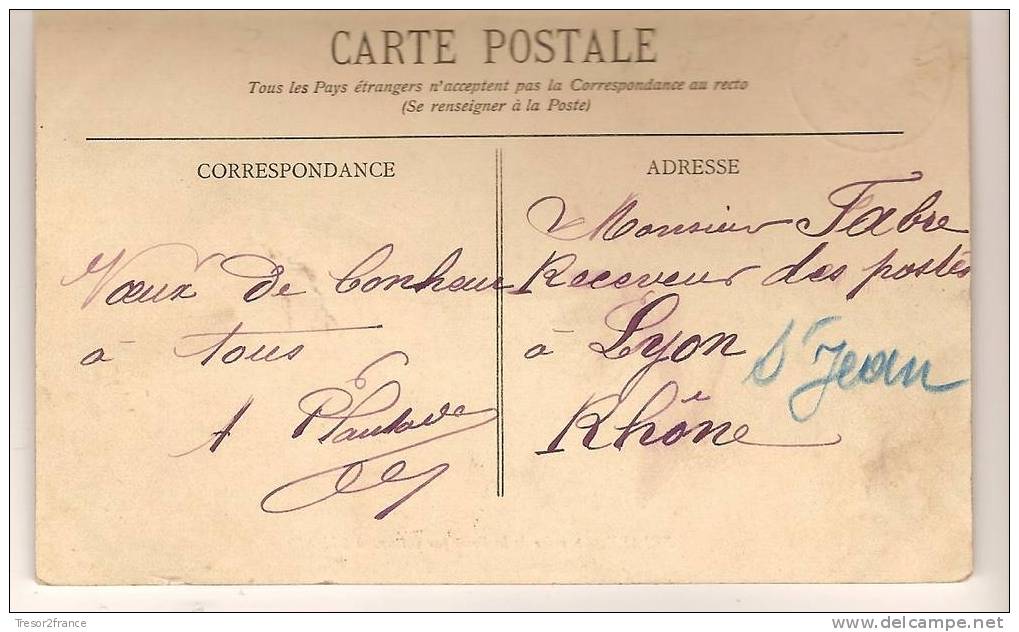 CARTE POSTALE
Tous les Pays étrangers n'acceptent pas la Correspondance au recto
(Se renseigner à la Poste)
CORRESPONDANCE
Vœux de bonheur
à tous
A
ADRESSE
Monsieur Fabre
Receveur des postes
à Lyon St Jean
Rhône
Tresor2france
www.delcampe.net